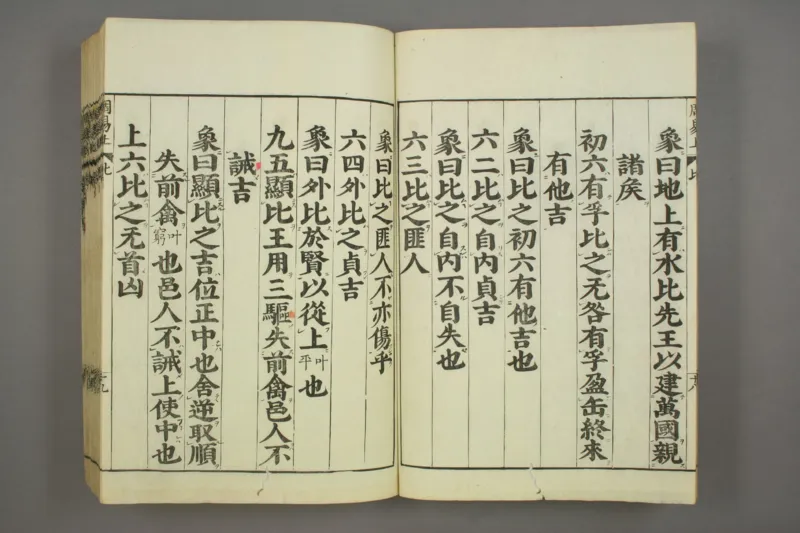 象曰地上有水比先王以建萬國親
諸矦
初六有孚比之无咎有孚盈缶終來
有他吉
象曰比之初六有他吉也
六二比之自内貞吉
象曰比之自内不自失也
六三比之匪人
象曰比之匪人不亦傷乎
六四外比之貞吉
象曰外比於賢以從上叶平也
九五顯比王用三驅失前禽邑人不
誡吉
象曰顯比之吉位正中也舍逆取順
失前禽叶窮也邑人不誡上使中也
上六比之无首凶
周易上
比
十九